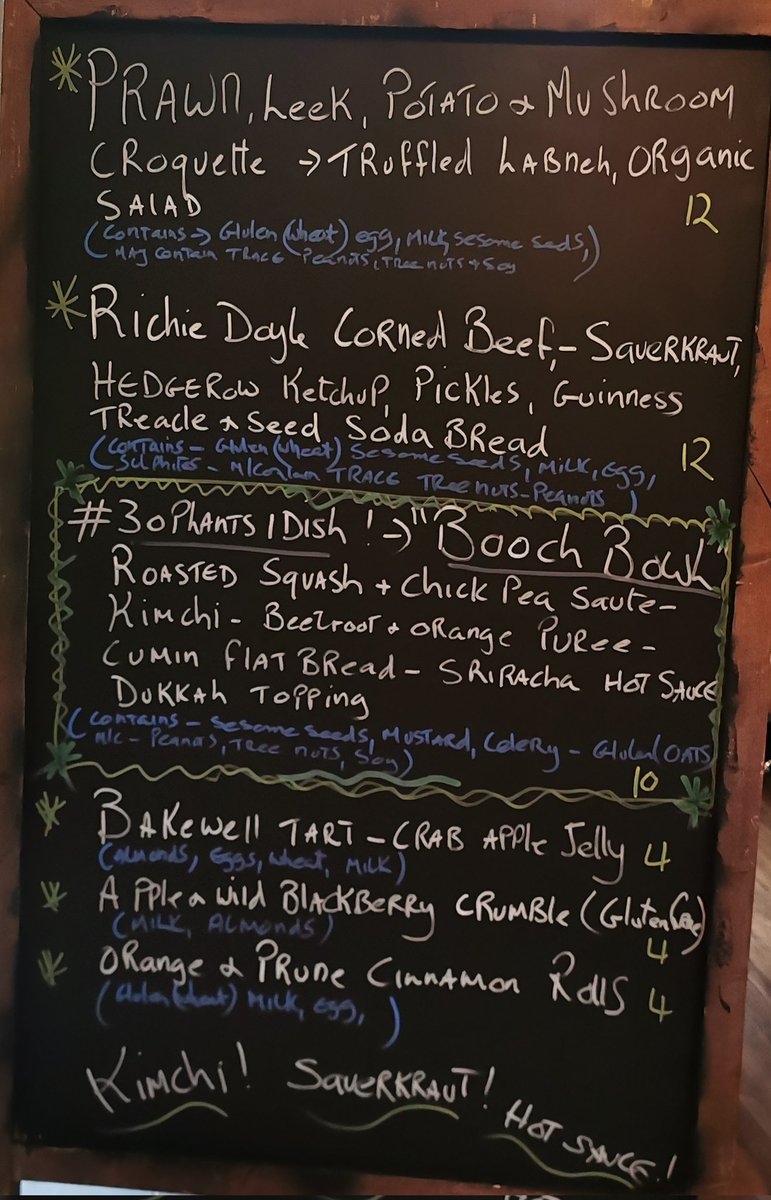 * PRAWN, Leek, POTATO & MUSHROOM
CROquette → TRuffled LABneh, ORganic
SALAD 12
(CONTAINS → Gluten (wheat) egg, MILK, sesome seeds,
MAY CONTAIN TRACE Peanuts, TRee nuts + Soy)
* Richie Doyle CORNed Beef, - SAUERKRAUT,
HEDGEROW Ketchup, Pickles, Guinness
TReacle & Seed Soda BRead 12
(CONTAINS - Gluten (wheat) Sesame seeds, MILK, Egg,
Sulphites - M/Contain TRACE TRee nuts - Peanuts)
#30PLANTS 1 DISH! → "Booch Bowl"
ROASTED Squash + Chick Pea Saute -
Kimchi - Beetroot & ORange PUREE -
Cumin FLAT BRead - SRIRAcha HOT SAUCE
DUKKAH TOPPING
(CONTAINS - Sesame Seeds, MUSTARD, Celery - Gluten (OATS)
M/C - Peanuts, TRee nuts, Soy)
10
* BAKewell TART - CRAB APPle Jelly 4
(Almonds, Eggs, Wheat, MILK)
* APPle & wild BLACKBeRRy CRUMBLe (Gluten Free)
(MILK, ALMONDS) 4
* ORange & PRune Cinnamon Rolls 4
(Gluten (wheat) MILK, Egg, )
Kimchi! SAUERKRAUT! HOT SAUCE!